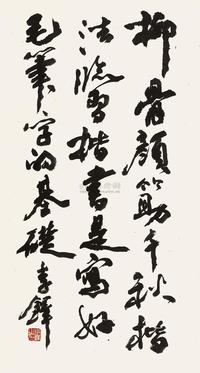 柳骨顏筋千秋楷
法臨習楷書是寫好
毛筆字的基礎李鐸